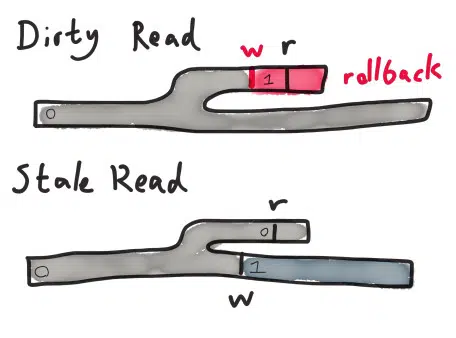 Dirty Read
w r
1
rollback
0
Stale Read
r
0
0
1
w